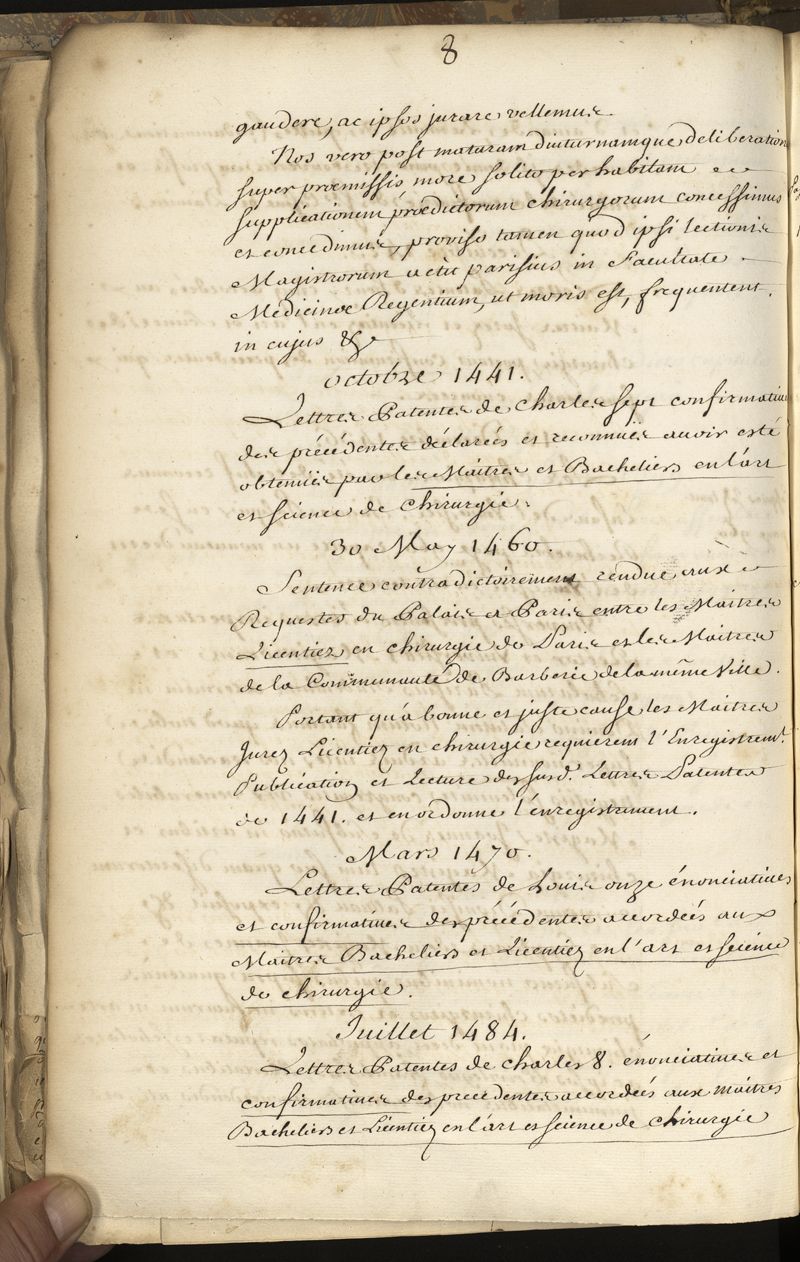 8
gaudere, ac ipsos jurare vellemus.
Nos vero post maturam diuturnamque deliberation
super proemissis more solito per habitam
supplicationem proedictorum chirurgorum concessimus
et concedimus, proviso tamen quod ipsi lectionis
Magistrorum actu parisius in Facultate
Medicinoe Regentium, ut moris est, frequentent.
in cujus &c
octobre 1441.
Lettres Patentes de Charles sept confirmatives
des précédentes déclarées et reconnües avoir esté
obtenües par les Maitres et Bacheliers en l'art
et science de chirurgie.
30 May 1460.
Sentence contradictoirement rendue aux
Requestes du Palais a Paris entre les Maitres
Licentiez en chirurgie de Paris et les Maitres
de la Communauté de Barberie de la même Ville.
Portant qu'a bonne et juste cause les Maitres
Jurez Licentiez en chirurgie requierent l'Enregistremt.
Publication et Lecture des susd. Lettres Patentes
de 1441. et en ordonne l'enregistrement.
Mars 1470.
Lettres Patentes de Louis onze énonciatives
et confirmatives des précédentes accordées aux
Maitres Bacheliers et Licentiez en l'art et science
de chirurgie.
Juillet 1484.
Lettres Patentes de charles 8. énonciatives et
confirmatives des precedentes accordées aux maitres
Bacheliers et Licentiez en l'art et science de chirurgie